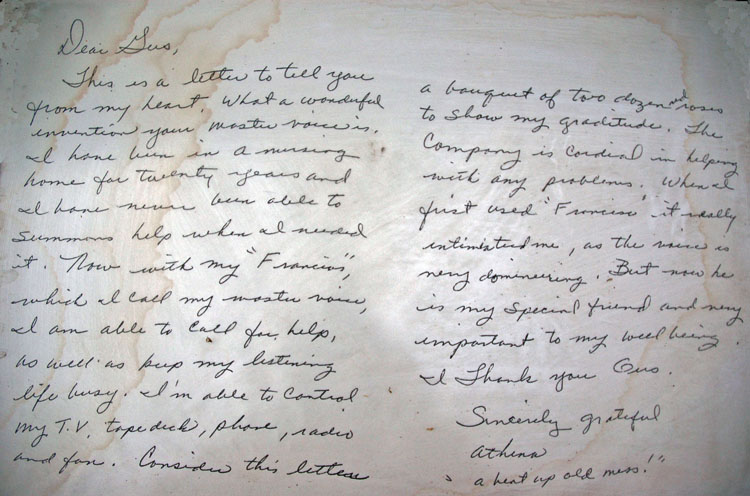 Dear Gus,
This is a letter to tell you
from my heart. What a wonderful
invention your master voice is.
I have been in a nursing
home for twenty years and
I have never been able to
summons help when I needed
it. Now with my "Francis",
which I call my master voice,
I am able to call for help,
as well as keep my listening
life busy. I'm able to control
my T.V, tape deck, phone, radio
and fan. Consider this letter
a bouquet of two dozen red roses
to show my graditude. The
Company is cordial in helping
with any problems. When I
first used "Francisco" it really
intimidated me, as the voice is
very domineering. But now he
is my special friend and very
important to my well being.
I Thank you Gus.
Sincerely grateful
Athena
"a beat up old mess!"